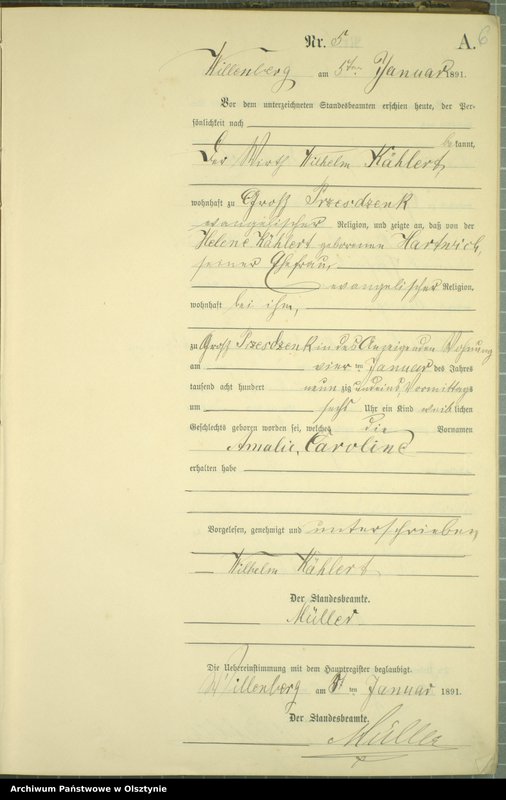 Nr. 5
A. 6
Willenberg am 5ten Januar 1891.
Vor dem unterzeichneten Standesbeamten erschien heute, der Per-
sönlichkeit nach
be kannt,
Der Wirth Wilhelm Kählert,
wohnhaft zu Groß Przesdzenk
evangelischer Religion, und zeigte an, daß von der
Helene Kählert geborenen Hartwich,
seiner Ehefrau,
evangelischer Religion,
wohnhaft bei ihm,
zu Groß Przesdzenk in des Anzeigenden Wohnung
am vier ten Januar des Jahres
tausend acht hundert neun zig und eins, Vormittags
um sechs Uhr ein Kind weib lichen
Geschlechts geboren worden sei, welches die Vornamen
Amalie, Caroline
erhalten habe
Vorgelesen, genehmigt und unterschrieben
Wilhelm Kählert
Der Standesbeamte.
Müller
Die Uebereinstimmung mit dem Hauptregister beglaubigt.
Willenberg am ten Januar 1891.
Der Standesbeamte.
Müller
Archiwum Państwowe w Olsztynie